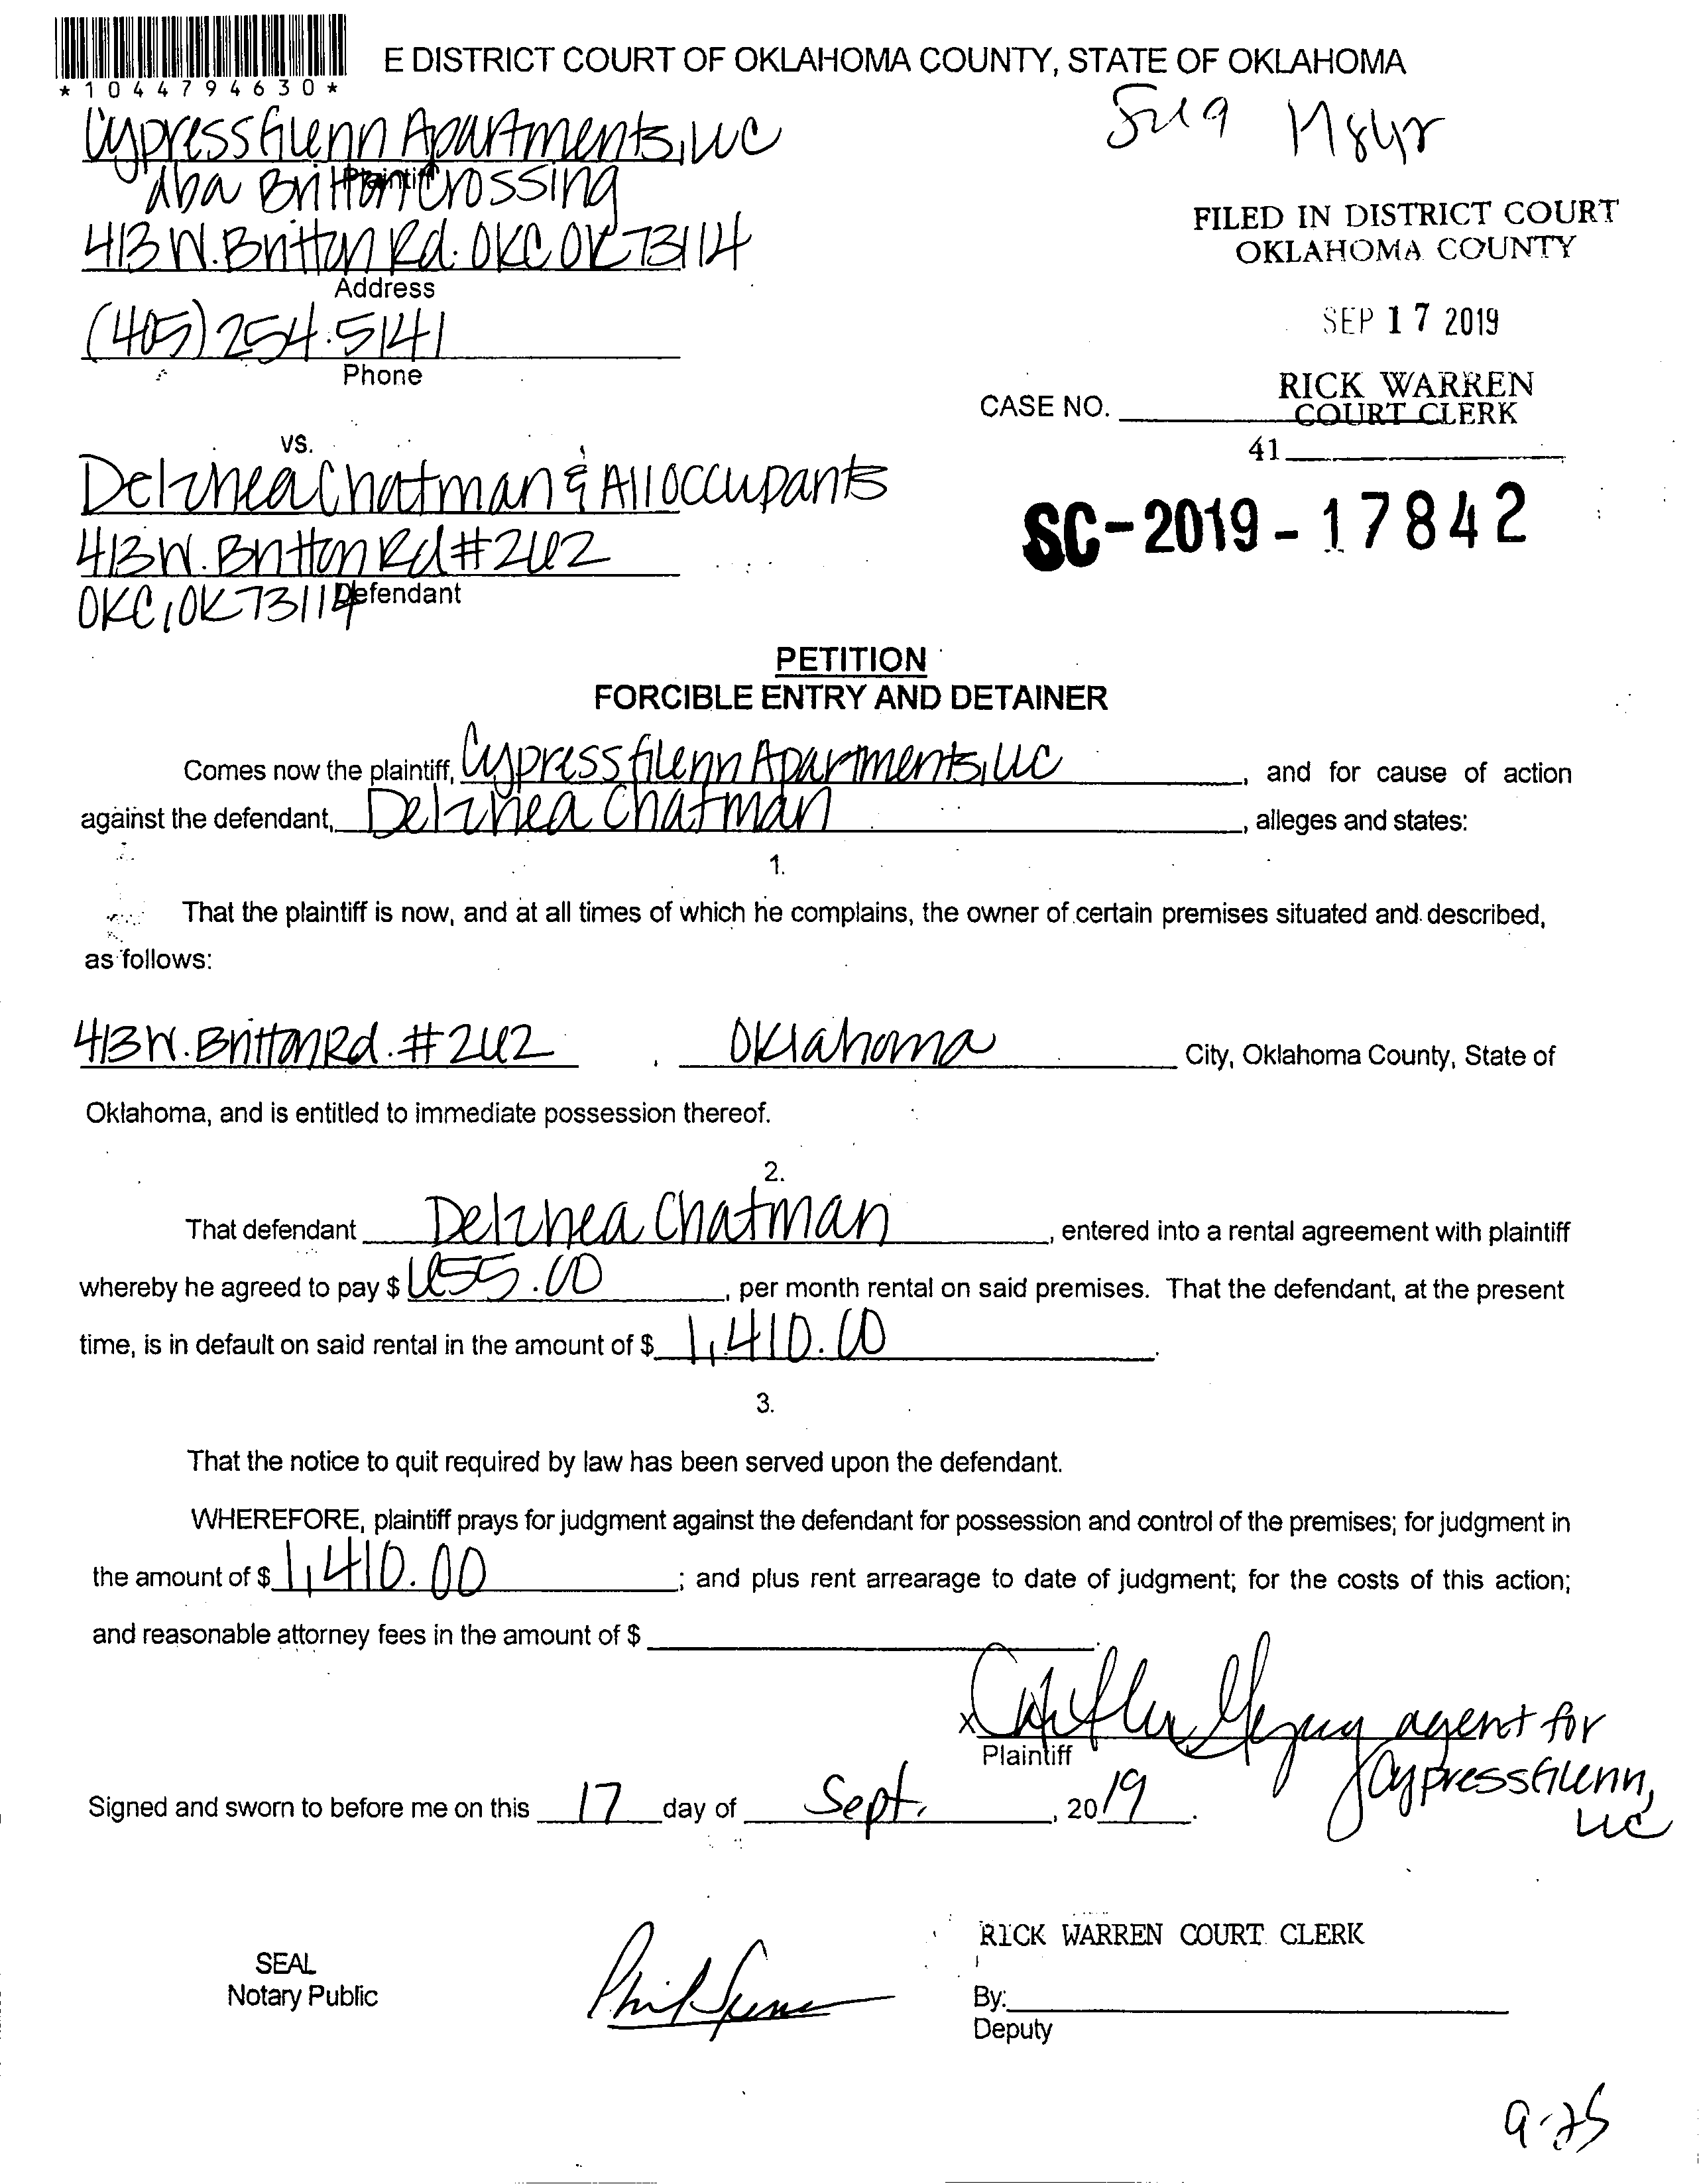 *1044794630*
E DISTRICT COURT OF OKLAHOMA COUNTY, STATE OF OKLAHOMA
Cypress Glenn Apartments, LLC
Plaintiff
dba Britton Crossing
413 W. Britton Rd. OKC OK 73114
Address
(405) 254-5141
Phone
FILED IN DISTRICT COURT
OKLAHOMA COUNTY
SEP 17 2019
RICK WARREN
COURT CLERK
CASE NO.
41
SC-2019-17842
VS.
Delzhea Chatman & All occupants
413 W. Britton Rd #262
Defendant
OKC, OK 73114
PETITION
FORCIBLE ENTRY AND DETAINER
Comes now the plaintiff, Cypress Glenn Apartments, LLC, and for cause of action
against the defendant, Delzhea Chatman, alleges and states:
1.
That the plaintiff is now, and at all times of which he complains, the owner of certain premises situated and described,
as follows:
413 W. Britton Rd. #262, Oklahoma City, Oklahoma County, State of
Oklahoma, and is entitled to immediate possession thereof.
2.
That defendant Delzhea Chatman, entered into a rental agreement with plaintiff
whereby he agreed to pay $ 655.00, per month rental on said premises. That the defendant, at the present
time, is in default on said rental in the amount of $ 1,410.00.
3.
That the notice to quit required by law has been served upon the defendant.
WHEREFORE, plaintiff prays for judgment against the defendant for possession and control of the premises; for judgment in
the amount of $ 1,410.00; and plus rent arrearage to date of judgment; for the costs of this action;
and reasonable attorney fees in the amount of $
X agent for
Plaintiff
Cypress Glenn,
LLC
Signed and sworn to before me on this 17 day of Sept., 2019.
RICK WARREN COURT CLERK
SEAL
Notary Public
By:
Deputy
9-25